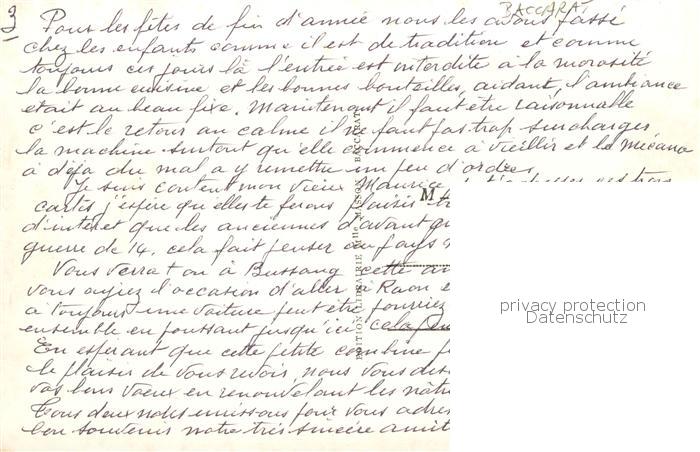 3
BACCARAT
Pour les fêtes de fin d'année nous les avons passé
chez les enfants comme il est de tradition et comme
toujours ces jours là l'entrée est interdite à la morosité
la bonne cuisine et les bonnes bouteilles, aidant, l'ambiance
etait au beau fixe. Maintenant il faut être raisonnable
c'est le retour au calme il ne faut pas trop surcharger
la machine surtout qu'elle commence à vieillir et le mécano
a déja du mal a y remettre un peu d'ordre.
Je suis content mon vieux Maurice
cartes j'espère qu'elles te ferons plaisir
d'intéret que les anciennes d'avant
guerre de 14. cela fait penser au pays
Vous verra t on à Bussang cette
vous aujiez l'occasion d'aller à Raon
a toujours une voiture peut être pourriez
ensemble en poussant jusqu'ici cela
En espérant que cette petite combine
le plaisir de vous revoir, nous vous
vos bons voeux en renouvelant les
Tous deux nous unissons pour vous
bon souvenir notre très sincère amit
EDITION LIBRAIRIE Mlle MISSON BACCARAT
privacy protection
Datenschutz